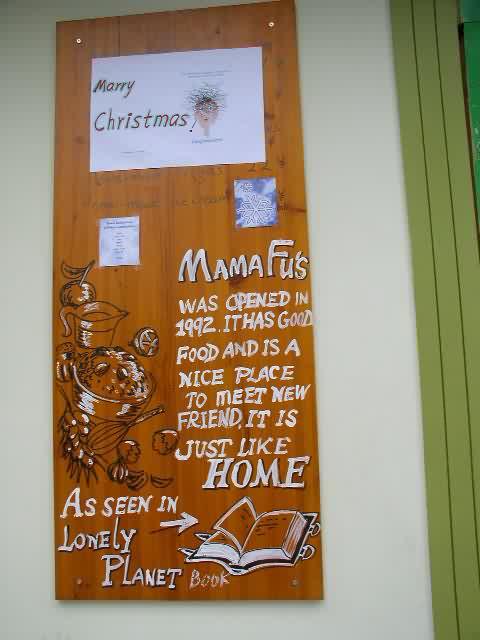 Marry
Christmas!
MAMA FU'S
WAS OPENED IN
1992. IT HAS GOOD
FOOD AND IS A
NICE PLACE
TO MEET NEW
FRIEND, IT IS
JUST LIKE
HOME
AS SEEN IN
LONELY
PLANET BOOK